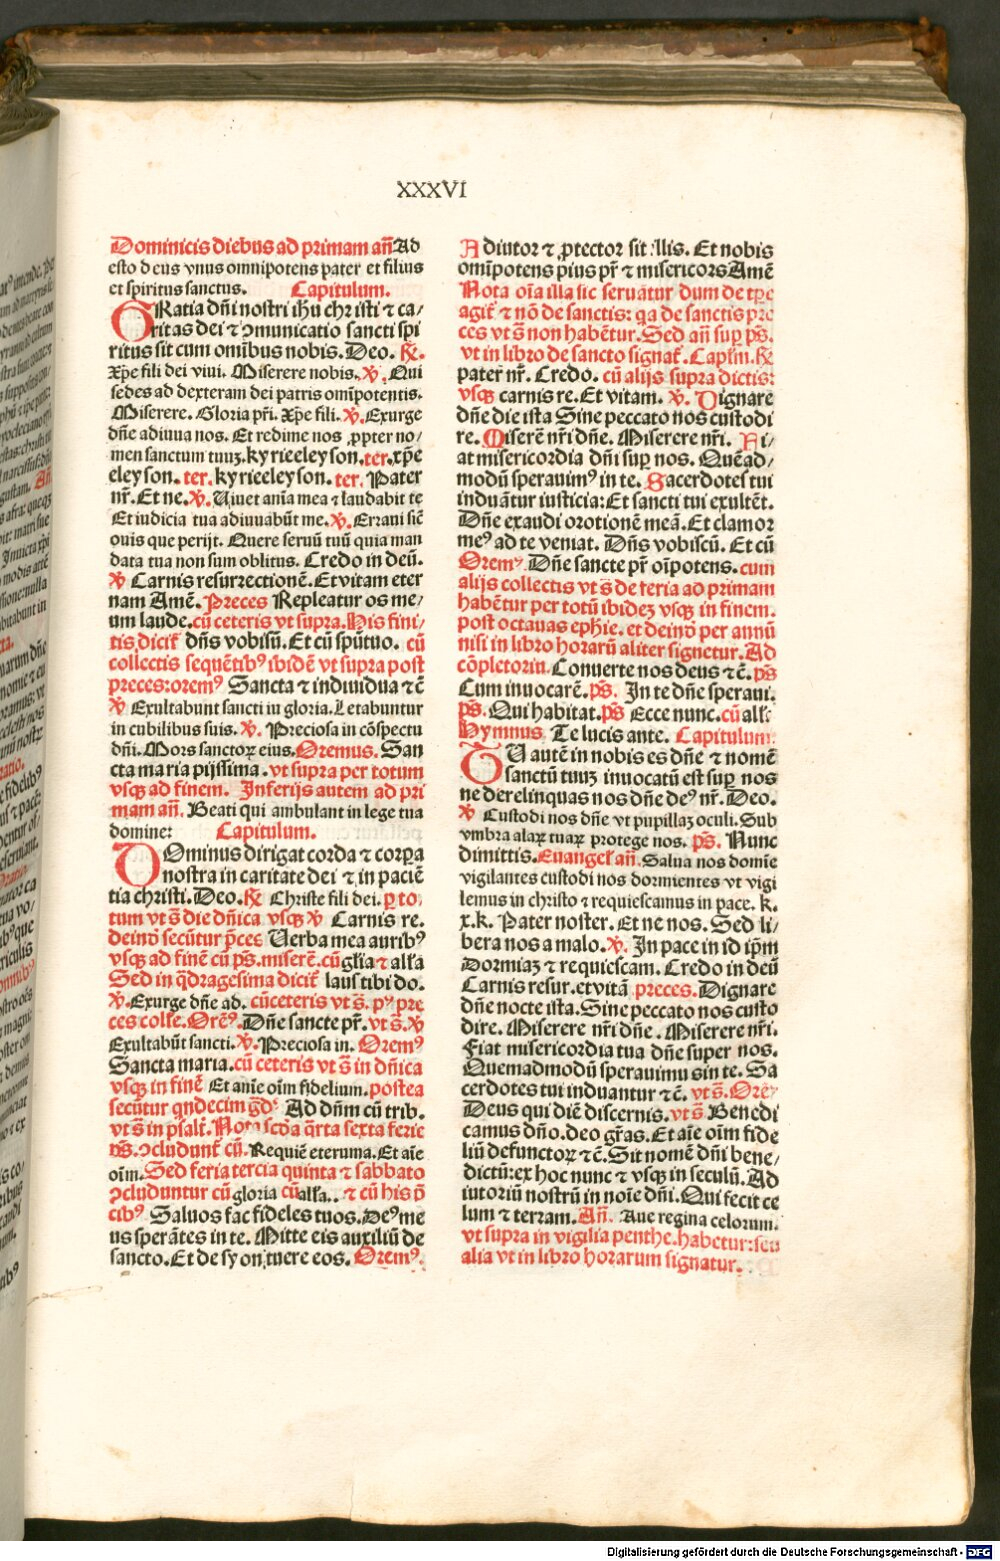 XXXVI
Dominicis diebus ad primam an̄ Ad
esto deus vnus omnipotens pater et filius
et spiritus sanctus. Capitulum.
GRatia dn̄i nostri ihū christi ⁊ ca/
ritas dei ⁊ ꝯmunicatio sancti spi
ritus sit cum omībus nobis. Deo. ℟.
Xp̄e fili dei viui. Miserere nobis. ℣. Qui
sedes ad dexteram dei patris omīpotentis.
Miserere. Gloria pr̄i. Xp̄e fili. ℣. Exurge
dn̄e adiuua nos. Et redime nos ꝓpter no/
men sanctum tuuꝫ. kyrieeleyson. ter. xp̄e
eleyson. ter. kyrieeleyson. ter. Pater
nr̄. Et ne. ℣. Uiuet aīa mea ⁊ laudabit te
Et iudicia tua adiuuabūt me. ℣. Erraui sic̄
ouis que perijt. Quere seruū tuū quia man
data tua non sum oblitus. Credo in deū.
℣ Carnis resurrectionē. Et vitam eter
nam Amē. Preces Repleatur os me/
um laude. cū ceteris vt supra. His fini/
tis dicit̄ dn̄s vobisū. Et cū spūtuo. cū
collectis sequētibꝰ ibidē vt supra post
preces: oremꝰ Sancta ⁊ indiuidua ⁊ c̄
℣ Exultabunt sancti iu gloria. Letabuntur
in cubilibus suis. ℣. Preciosa in cōspectu
dn̄i. Mors sanctoꝝ eius. Oremus. San
cta maria pijssima. vt supra per totum
vsqꝫ ad finem. Inferijs autem ad pri
mam an̄. Beati qui ambulant in lege tua
domine: Capitulum.
DOminus dirigat corda ⁊ corpa
nostra in caritate dei ⁊ in paciē
tia christi. Deo. ℟ Christe fili dei. ꝑ to
tum vt s̄ die dn̄ica vsqꝫ ℣ Carnis re.
deinō secūtur p̄ces Uerba mea auribꝰ
vsqꝫ ad finē cū ps̄. miserē. cū gl̄ia ⁊ all̄a
Sed in q̄dragesima dicit̄ laus tibi do.
℣. Exurge dn̄e ad. cūceteris vt s̄. pꝰ pre
ces coll̄e. Orēꝰ. Dn̄e sancte pr̄. vt s̄. ℣
Exultabūt sancti. ℣. Preciosa in. Oremꝰ
Sancta maria. cū ceteris vt s̄ in dn̄ica
vsqꝫ in finē Et anīe oīm fidelium. postea
secūtur qndecim g̅d̅ꝰ Ad dn̄m cū trib.
vt s̄ in psalt̄. Nota scd̄a q̄rta sexta ferie
ps̄. ꝯcludunt̄ cū. Requiē eternma. Et aīe
oīm. Sed feria tercia quinta ⁊ sabbato
ꝯcluduntur cū gloria cū all̄a.. ⁊ cū his p̄
cibꝰ Saluos fac fideles tuos. Deꝰ me
us sperātes in te. Mitte eis auxiliū de
sancto. Et de syon tuere eos. Oremꝰ.
Adiutor ⁊ ꝓtector sit illis. Et nobis
omīpotens pius pr̄ ⁊ misericors Amē
Nota oīa illa sic seruātur dum de tp̄e
agit̄ ⁊ nō de sanctis: qa de sanctis pre
ces vt s̄ non habētur. Sed an̄ suꝑ ps̄.
vt in libro de sancto signat̄. Capl̄m. ℟
pater nr̄. Credo. cū alijs supra dictis:
vsqꝫ carnis re. Et vitam. ℣. Dignare
dn̄e die ista Sine peccato nos custodi
re. Miserē nr̄i dn̄e. Miserere nr̄i. Fi/
at misericordia dn̄i suꝑ nos. Quēad/
modū sperauimꝰ in te. Sacerdotes tui
induātur iusticia: Et sancti tui exultēt.
Dn̄e exaudi orotionē meā. Et clamor
meꝰ ad te veniat. Dn̄s vobiscū. Et cū
Oremꝰ. Dn̄e sancte pr̄ oīpotens. cum
alijs collectis vt s̄ de feria ad primam
habētur per totū ibideꝫ vsqꝫ in finem.
post octauas ephie. et deinō per annū
nisi in libro horarū aliter signetur. Ad
cōpletoriū Conuerte nos deus ⁊ c̄. ps̄
Cum inuocarē. ps̄. In te dn̄e speraui.
ps̄. Qui habitat. ps̄ Ecce nunc. cū all̄
Hymnus Te lucis ante. Capitulum.
TU autē in nobis es dn̄e ⁊ nomē
sanctū tuuꝫ inuocatū est suꝑ nos
ne derelinquas nos dn̄e deꝰ nr̄. Deo.
℣ Custodi nos dn̄e vt pupillaꝫ oculi. Sub
vmbra alaꝝ tuaꝝ protege nos. ps̄. Nunc
dimittis. Euangel̄ an̄. Salua nos domīe
vigilantes custodi nos dormientes vt vigi
lemus in christo ⁊ requiescamus in pace. k.
x. k. Pater noster. Et ne nos. Sed li/
bera nos a malo. ℣. In pace in id ip̄m
Dormiaꝫ ⁊ requiescam. Credo in deū
Carnis resur. et vitā preces. Dignare
dn̄e nocte ista. Sine peccato nos custo
dire. Miserere nr̄i dn̄e. Miserere nr̄i.
Fiat misericordia tua dn̄e super nos.
Quemadmodū sperauimu sin te. Sa
cerdotes tui induantur ⁊ c̄. vt s̄. Orēꝰ
Deus qui diē discernis. vt s̄ Benedi
camus dn̄o. deo gr̄as. Et aīe oīm fide
liū defunctoꝝ ⁊ c̄. Sit nomē dn̄i bene/
dictū: ex hoc nunc ⁊ vsqꝫ in seculū. Ad
iutoriū nostrū in noīe dn̄i. Qui fecit ce
lum ⁊ terram. An̄. Aue regina celorum.
vt supra in vigilia penthe. habetur: seu
alia vt in libro horarum signatur.
Digitalisierung gefördert durch die Deutsche Forschungsgemeinschaft - DFG